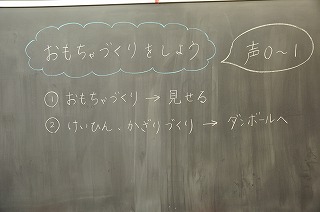 おもちゃづくりをしよう
声0～1
① おもちゃづくり → 見せる
② けいひん、かざりづくり → ダンボールへ